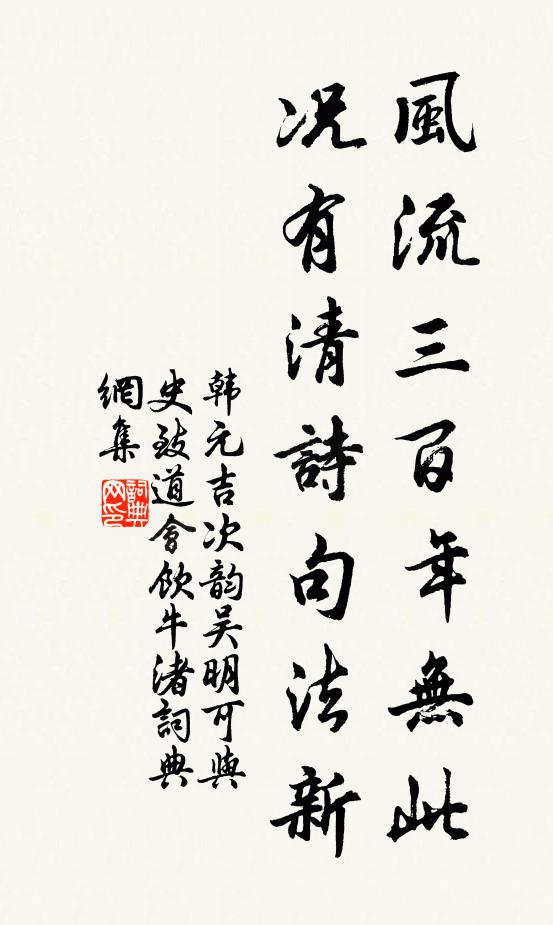 風流三百年無此
况有清詩句法新
韩元吉次韵吴明可與
史致道會飲牛渚詞典
網集
詞典
网印